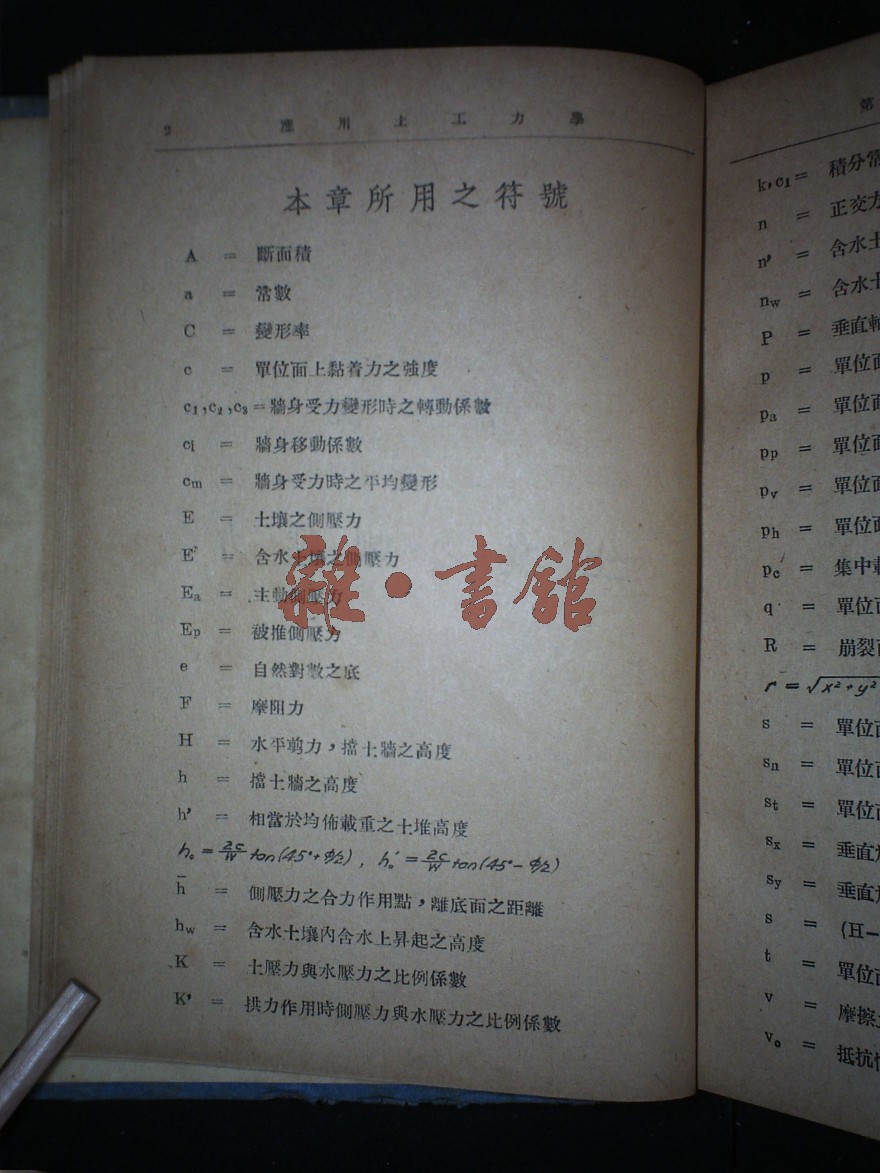 2 應用土工力學
本章所用之符號
A = 斷面積
a = 常數
C = 變形率
c = 單位面上黏着力之強度
c₁,c₂,c₃=牆身受力變形時之轉動係數
cᵢ = 牆身移動係數
cₘ = 牆身受力時之平均變形
E = 土壤之側壓力
E' = 含水土壤之側壓力
Eₐ = 主動側壓力
Eₚ = 被推側壓力
e = 自然對數之底
F = 摩阻力
H = 水平剪力,擋土牆之高度
h = 擋土牆之高度
h' = 相當於均佈載重之土堆高度
h₀ = 2c/w tan(45°+Φ/2), h₀' = 2c/w tan(45°-Φ/2)
h̄ = 側壓力之合力作用點,離底面之距離
h_w = 含水土壤內含水上昇起之高度
K = 土壓力與水壓力之比例係數
K' = 拱力作用時側壓力與水壓力之比例係數
雜·書館
第
k,c₁= 積分常
n = 正交力
n' = 含水土
n_w = 含水土
P = 垂直軸
p = 單位面
pₐ = 單位面
pₚ = 單位面
pᵥ = 單位面
pₕ = 單位面
p_c = 集中載
q = 單位面
R = 崩裂面
r = √x²+y²
s = 單位面
sₙ = 單位面
sₜ = 單位面
sₓ = 垂直
s_y = 垂直
s = (H−
t = 單位面
v = 摩擦
v₀ = 抵抗